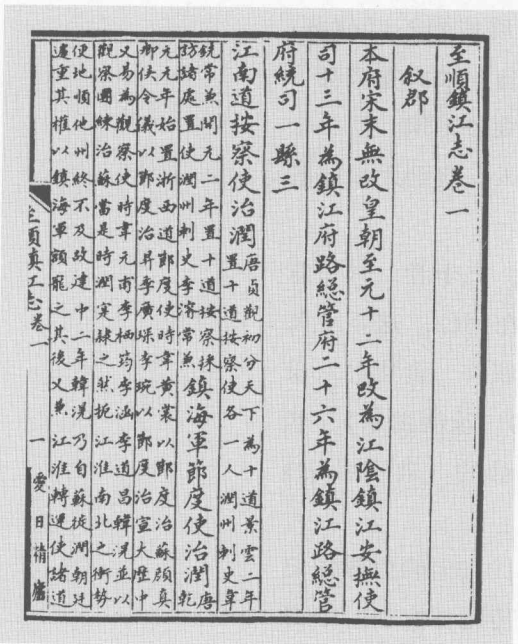 至順鎮江志卷一
叙郡
本府宋末無改皇朝至元十二年改為江陰鎮江安撫使
司十三年為鎮江府路總管府二十六年為鎮江路總管
府統司一縣三
江南道按察使治潤唐貞觀初分天下為十道景雲二年
置十道按察使各一人潤州刺史韋
銑常兼開元二年置十道按察採
訪諸處置使潤州刺史李濬常兼
鎮海軍節度使治潤唐
乾
元元年始置浙西道節度使時韋黃裳以節度治蘇顏真
卿侯令儀以節度治昇李廣琛李琬以節度治宣大歷中
又易為觀察使時韋元甫李栖筠李涵李道昌韓滉並以
觀察團練治蘇當是時潤寔隸之然扼江淮南北之衝勢
便地順他州終不及故建中二年韓滉乃自蘇徙潤朝廷
遽重其權以鎮海軍額寵之其後又兼江淮轉運使諸道
至順鎮江志卷一
一
愛日精廬